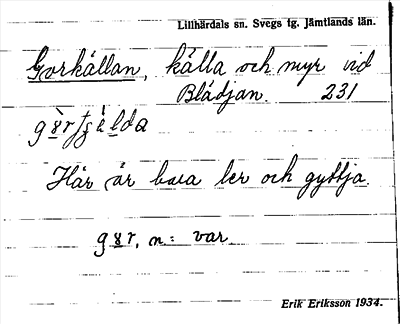 Lillhärdals sn. Svegs tg. Jämtlands län.
Gorkällan, källa och myr vid
Blädjan. 231
Här är bara ler och gyttja.
gɤr, n: var
Erik Eriksson 1934.